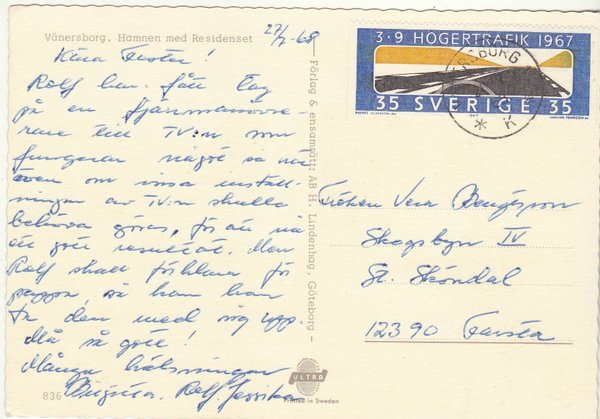 Vänersborg. Hamnen med Residenset
27/2-68
Kära Moster!
Rolf har fått tag
på en fjärrmanövre-
rare till TV:n som
fungerar något så när
även om vissa install-
ningar av TV:n skulle
behöva göras, för att nå
ett gott resultat. Men
Rolf skall förklara för
pappa, så kan han
ta den med sig upp.
Må så gott!
Många hälsningar
Birgitta, Rolf, Jessika
836
Förlag & ensamsätt: AB H. Lindenhag, Göteborg
ULTRA
Printed in Sweden
3·9 HÖGERTRAFIK 1967
35 SVERIGE 35
RSBORG
K
Fröken Vera Bengtsson
Skogsbyn IV
St. Sköndal
12390 Farsta